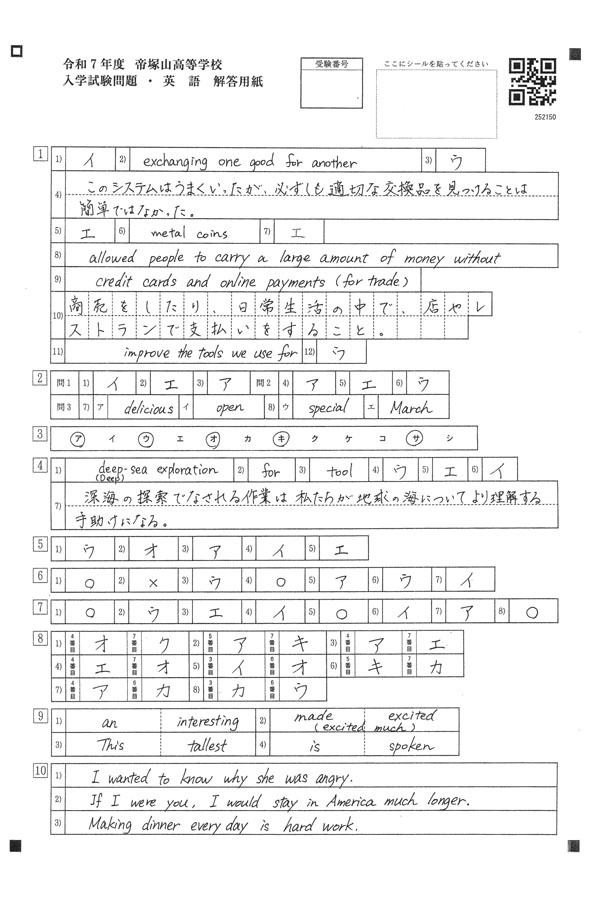 令和7年度 帝塚山高等学校
入学試験問題・英 語 解答用紙
受験番号
ここにシールを貼ってください
252150
1 1) イ 2) exchanging one good for another 3) ウ
4) このシステムはうまくいったが、必ずしも適切な交換品を見つけることは
簡単ではなかった。
5) エ 6) metal coins 7) エ
8) allowed people to carry a large amount of money without
9) credit cards and online payments (for trade)
10) 商売をしたり、日常生活の中で、店やレ
ストランで支払いをすること。
11) improve the tools we use for 12) ウ
2 問1 1) イ 2) エ 3) ア 問2 4) ア 5) エ 6) ウ
問3 7) ア delicious イ open 8) ウ special エ March
3 ア イ ウ エ オ カ キ ク ケ コ サ シ
4 1) deep-sea exploration 2) for 3) tool 4) ウ 5) エ 6) イ
(Deep)
7) 深海の探索でなされる作業は私たちが地球の海についてより理解する
手助けになる。
5 1) ウ 2) オ 3) ア 4) イ 5) エ
6 1) ○ 2) × 3) ウ 4) ○ 5) ア 6) ウ 7) イ
7 1) ○ 2) ウ 3) エ 4) イ 5) ○ 6) イ 7) ア 8) ○
8 1) 4番目 オ 7番目 ク 2) 5番目 ア 7番目 キ 3) 4番目 ア 7番目 エ
4) 4番目 エ 7番目 オ 5) 3番目 イ 6番目 オ 6) 5番目 キ 7番目 カ
7) 4番目 ア 6番目 カ 8) 3番目 カ 6番目 ウ
9 1) an interesting 2) made excited
(excited much)
3) This tallest 4) is spoken
10 1) I wanted to know why she was angry.
2) If I were you, I would stay in America much longer.
3) Making dinner every day is hard work.